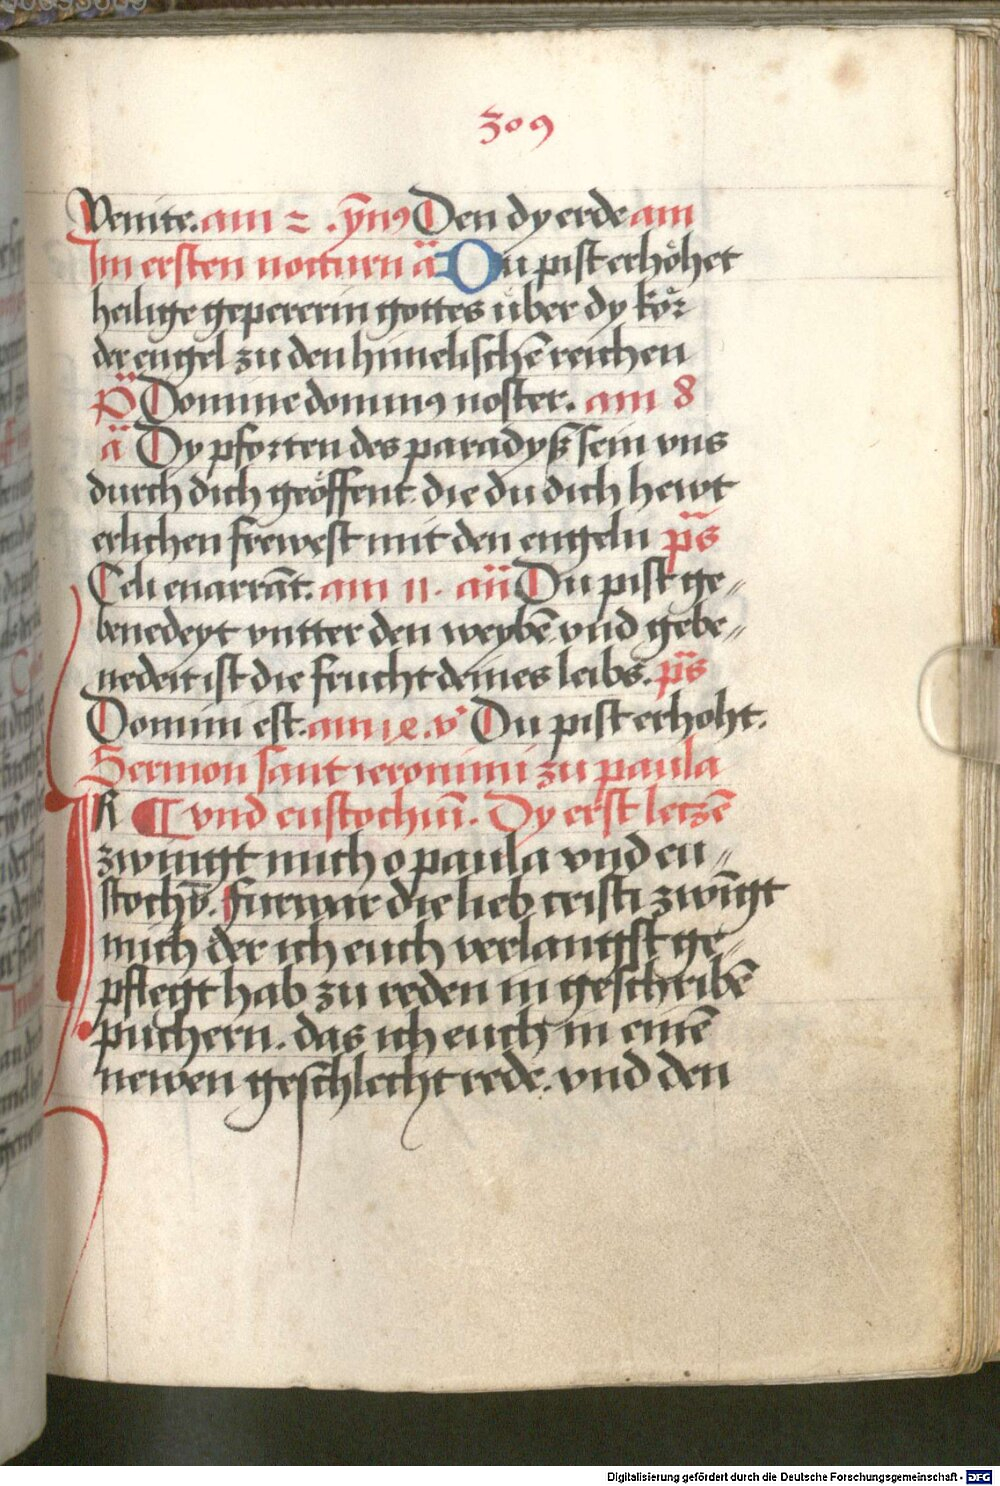 309
Venite. am 2. ÿm9 Den dy erde am
Im ersten nocturn ä Du pist erhöhet
heilige gepererin gottes über dy kör
der engel zu den himelischē reichen
p̄s Domine domin9 noster. am 8
ä Dy pforten des paradyß sein vns
durch dich geöffent die du dich hewt
erlichen frewest mit den engeln p̄s
Celi enarrāt. am 11. an̄ Du pist ge„
benedeyt vntter den weybē vnd gebe„
nedeit ist die frucht deines leibs. p̄s
Domini est. am v° Du pist erhoht.
Sermon sant ieronimi zu paula
IR ¶ vnd eustochiū. Dy erst letzē
zwingt mich o paula vnd eu„
stochū. furwar die lieb cristi zwīgt
mich der ich euch verlangst ge„
pflegt hab zu reden in geschribē
puchern. das ich euch in einē
newen geschlecht rede. vnd den
Digitalisierung gefördert durch die Deutsche Forschungsgemeinschaft - DFG